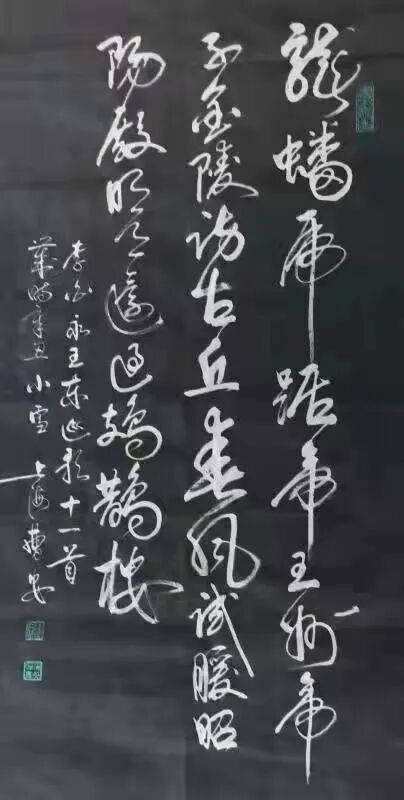 龍蟠虎踞帝王州帝
子金陵訪古丘春風試暖昭
陽殿明月還過鳷鵲樓
李白永王東巡歌十一首
時辛丑小雪 上海